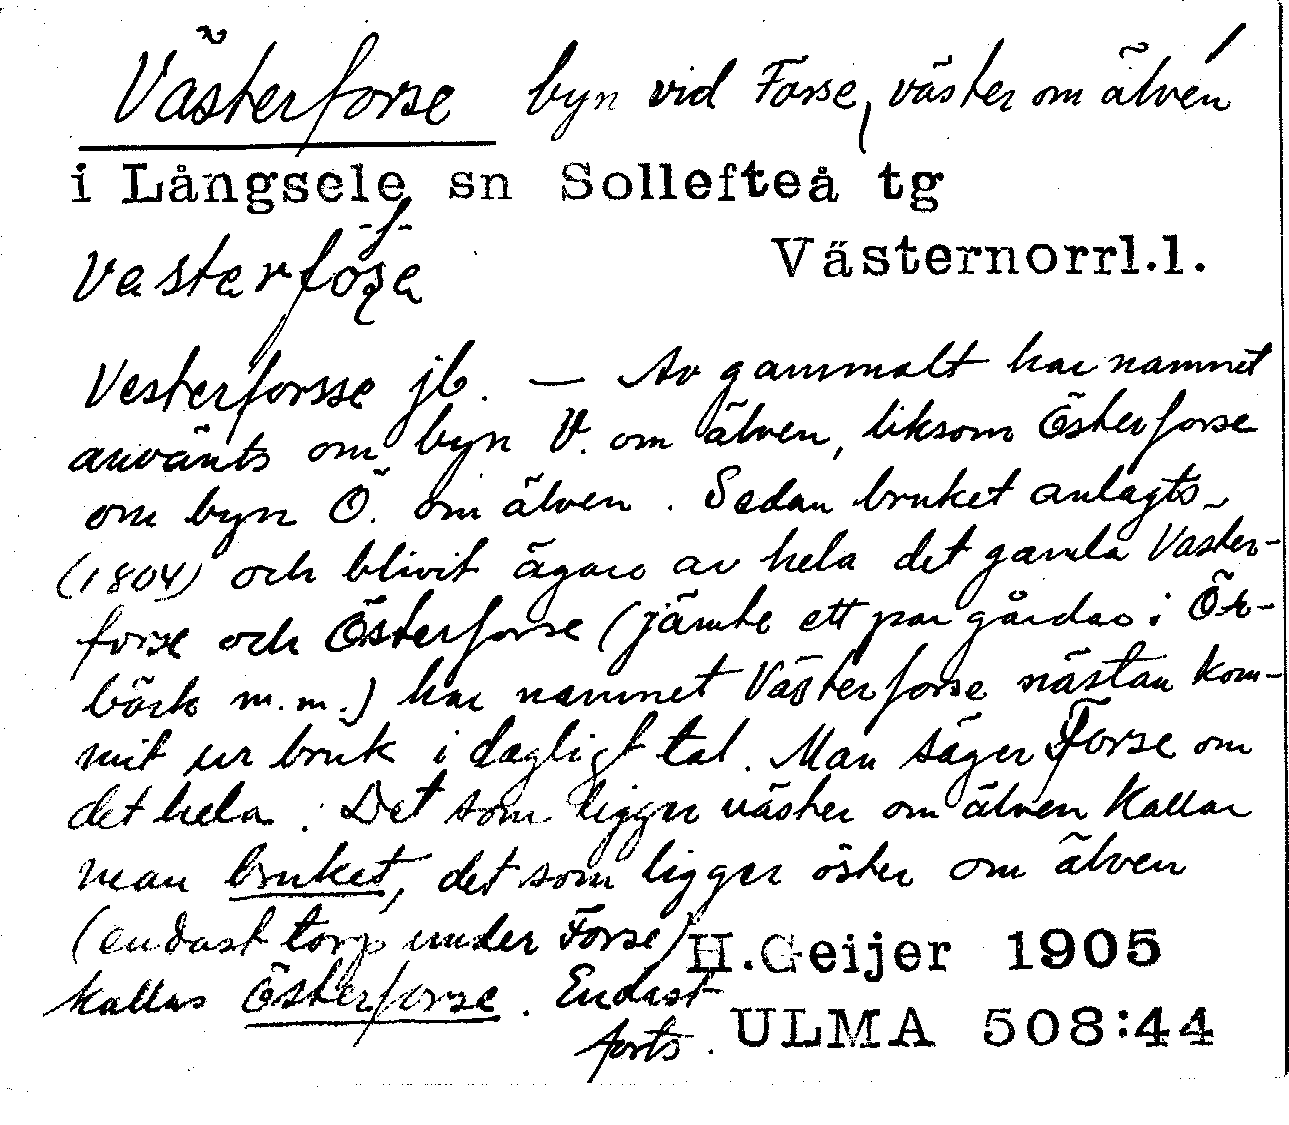 Västerforse byn vid Forse, väster om älven
i Långsele sn Sollefteå tg
Västernorrl.l.
Vesterforsse jb. — Av gammalt har namnet
använts om byn V. om älven, liksom Österforse
om byn Ö. om älven. Sedan bruket anlagts
(1804) och blivit ägare av hela det gamla Väster-
forse och Österforse (jämte ett par gårdar i Ör-
bäck m.m.) har namnet Västerforse nästan kom-
mit ur bruk i dagligt tal. Man säger Forse om
det hela. Det som ligger väster om älven kallar
man bruket, det som ligger öster om älven
(endast torp under Forse)
kallas Österforse. Endast
forts.
H.Geijer 1905
ULMA 508:44